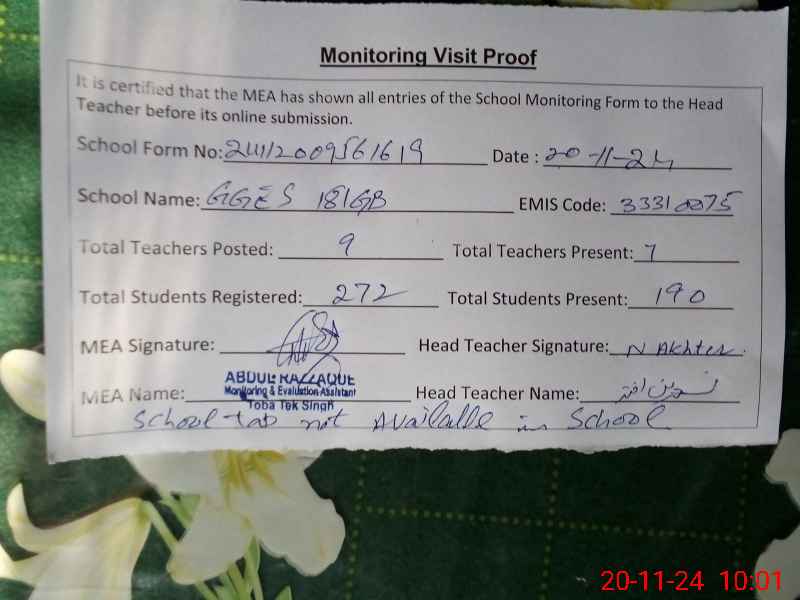 Monitoring Visit Proof
It is certified that the MEA has shown all entries of the School Monitoring Form to the Head
Teacher before its online submission.
School Form No: 24112009561619 Date : 20-11-24
School Name: GGES 181GB EMIS Code: 33310075
Total Teachers Posted: 9 Total Teachers Present: 7
Total Students Registered: 272 Total Students Present: 190
MEA Signature: Head Teacher Signature: N Akhter
MEA Name: ABDUL RAZZAQUE Head Teacher Name: نسرین اختر
Monitoring & Evaluation Assistant
Toba Tek Singh
School tab not Available in School
20-11-24 10:01